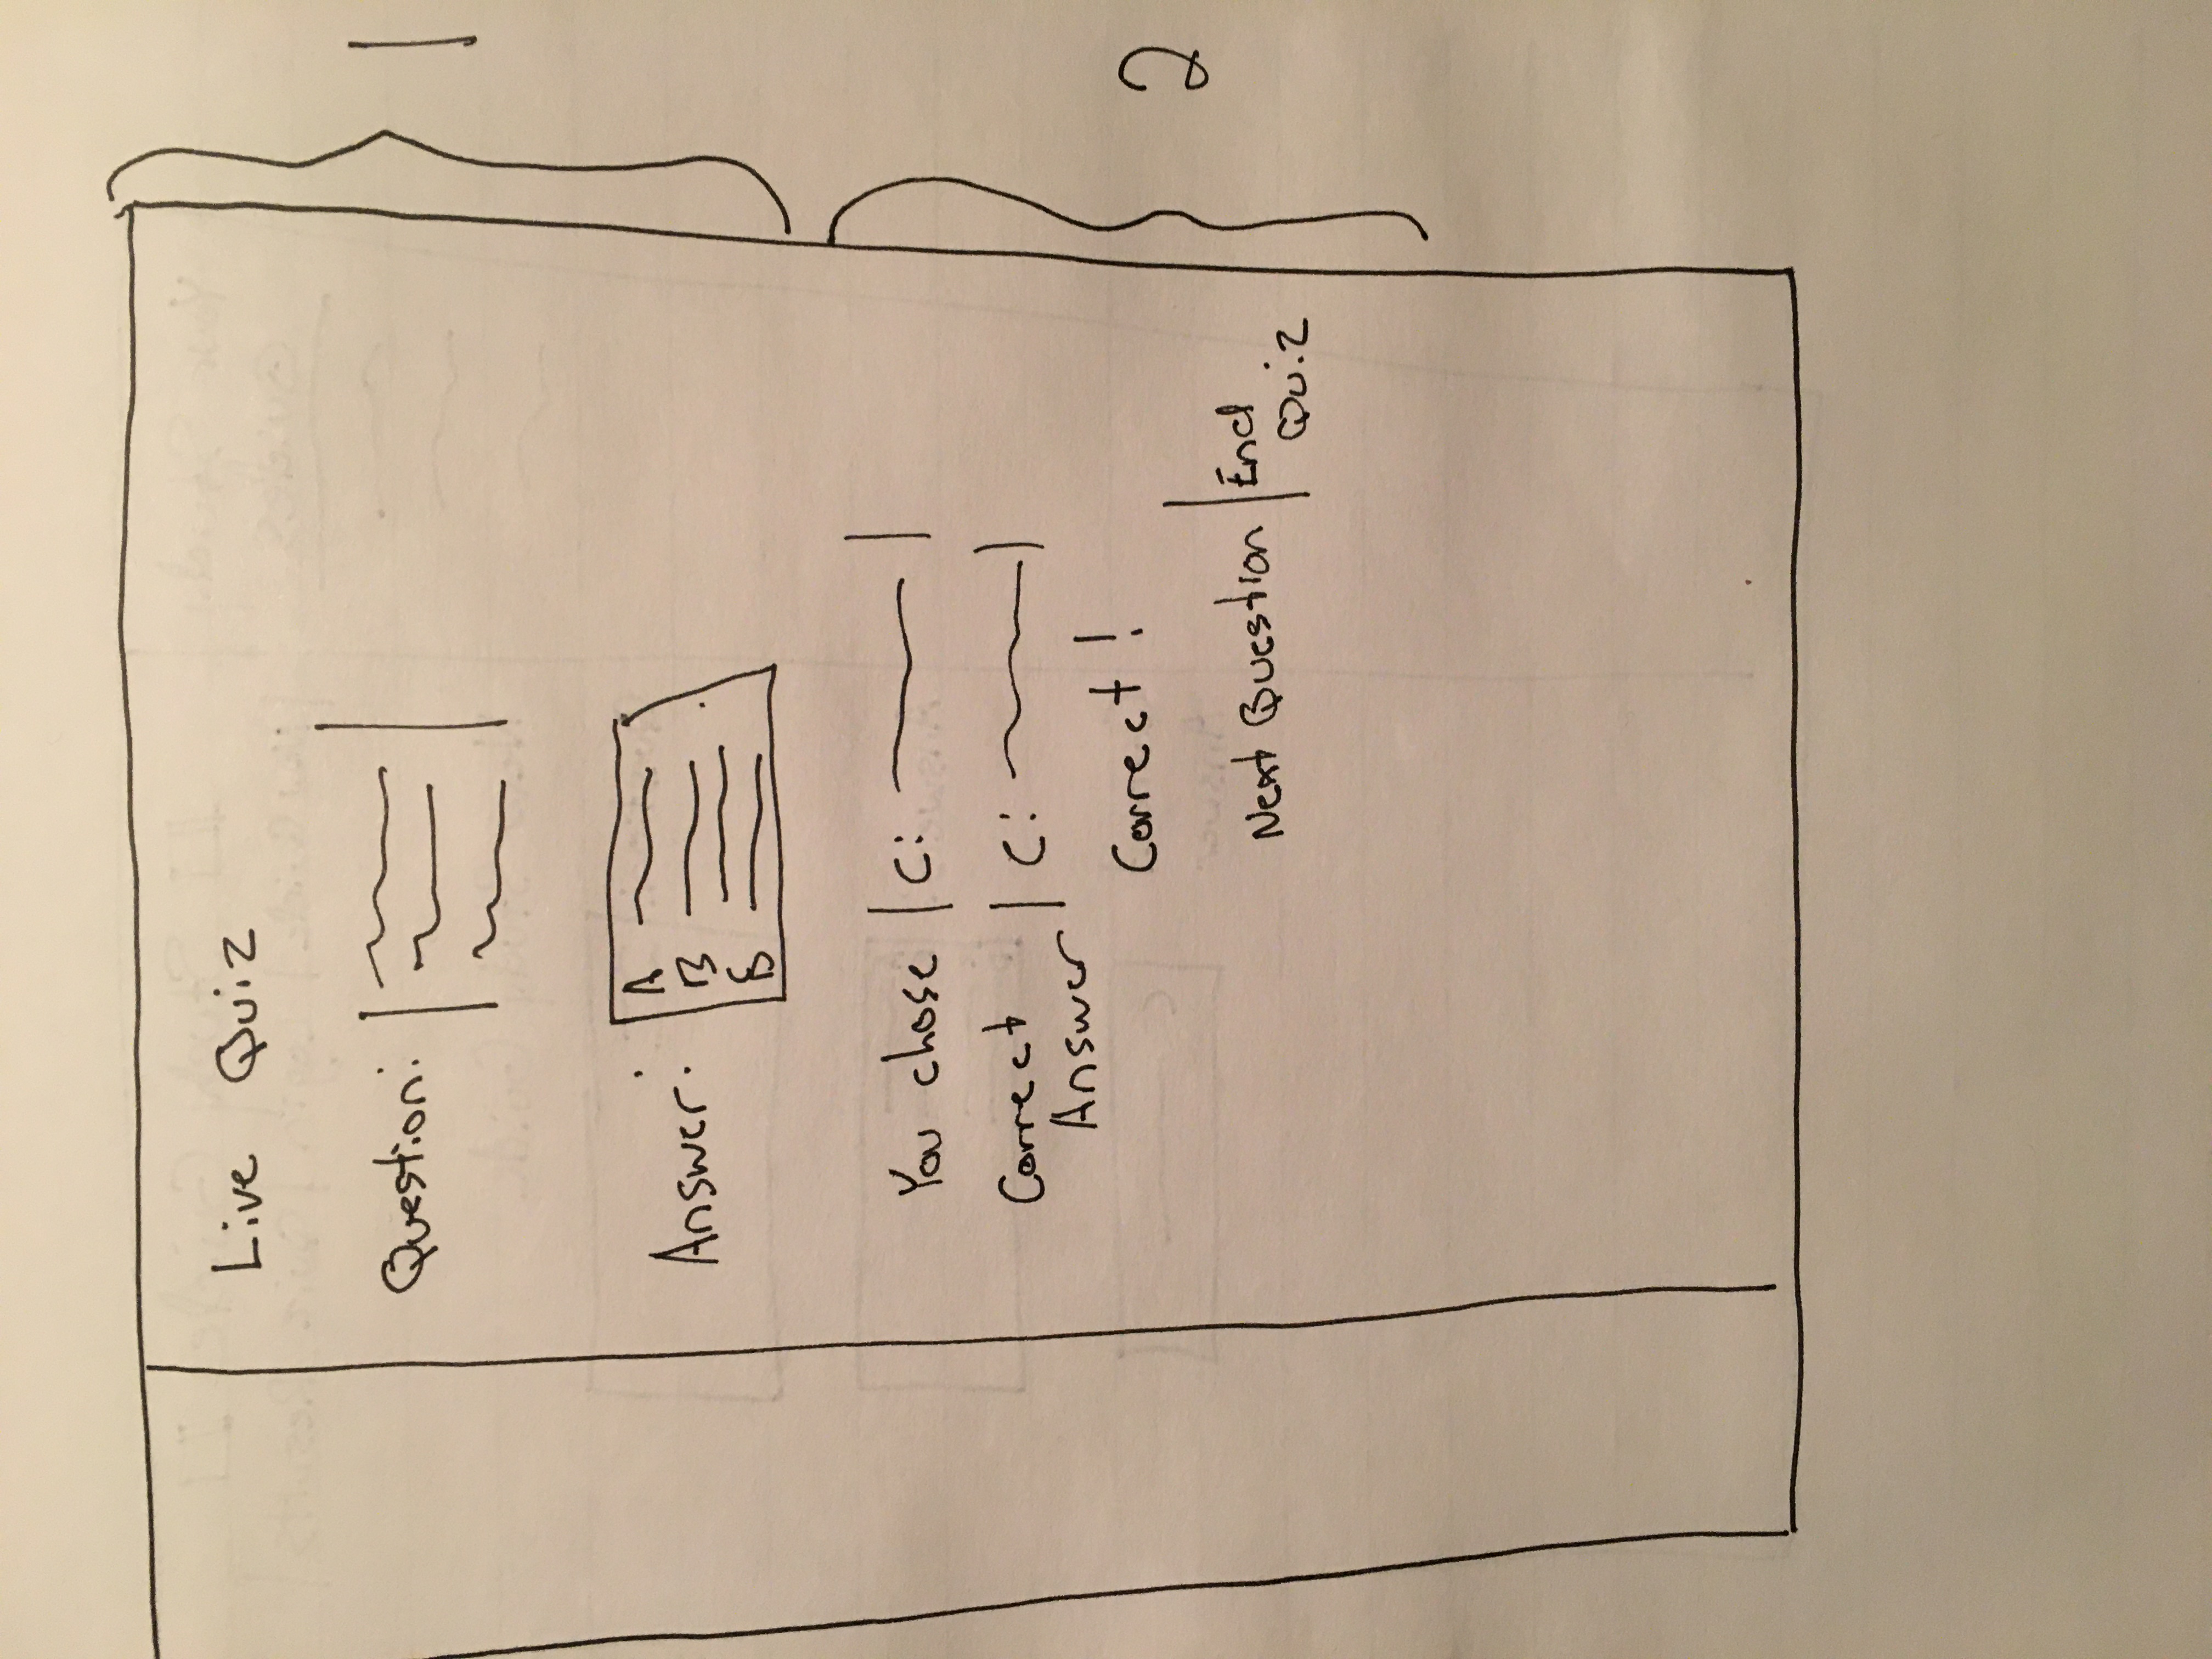 Live Quiz
1
Question:
Answer:
A
B
You chose | C:
Correct | C:
Answer
Correct!
Next Question | End
Quiz
2